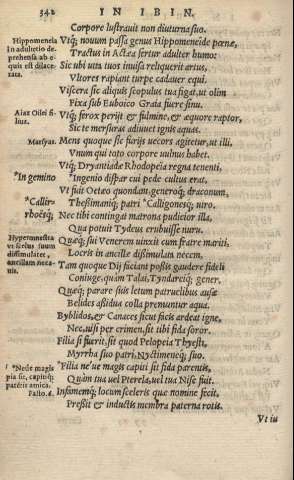 342 IN IBIN.
Corpore lustrauit non diuturna suo.
Hippomenela
In adulterio de-
prehensa ab e-
quis est dilace-
rata.
Vtq́; nouum passa genus Hippomeneide pœnæ,
Tractus in Actæa fertur adulter humo:
Sic ubi uita tuos inuisa reliquerit artus,
Vltores rapiant turpe cadauer equi.
Viscera sic aliquis scopulus tua figat, ut olim
Fixa sub Euboico Graia fuere sinu.
Aiax Oilei fi-
lius.
Vtq́; ferox perijt & fulmine, & æquore raptor,
Sic te mersuras adiuuet ignis aquas.
Marsyas.
Mens quoque sic furijs uecors agitetur, ut illi,
Vnum qui toto corpore uulnus habet.
Vtq́; Dryantiadæ Rhodopeïa regna tenenti,
*In gemino
*Ingenio dispar cui pede cultus erat,
Vt fuit Oetæo quondam generoq́; draconum,
*Callir-
rhoësq́;
Thesimaniq́; patri *Calligonesq́; uiro.
Nec tibi contingat matrona pudicior illa,
Qua potuit Tydeus erubuisse nuru.
Hypermnestra
ut scelus suum
dissimularet,
ancillam neca-
uit.
Quæq́; sui Venerem uinxit cum fratre mariti,
Locris in ancillæ dißimulata necem.
Tam quoque Dij faciant poßis gaudere fideli
Coniuge, quàm Talai, Tyndareiq́; gener,
Quæq́; parare suis letum patruelibus ausæ
Belides aßidua colla premuntur aqua.
Byblidos, & Canaces sicut facis ardeat igne,
Nec, nisi per crimen, sit tibi fida soror.
Filia si fuerit, sit quod Pelopeia Thyesti,
Myrrha suo patri, Nyctimeneq́; suo.
*Neue magis
pia sit, capitiq́;
patris amica.
Pasto. 4.
*Filia ne ue magis capiti sit fida parentis,
Quàm tua uel Pterela, uel tua Nise fuit.
Infamemq́; locum sceleris quæ nomine fecit,
Preßit & inductis membra paterna rotis.
Vt iu